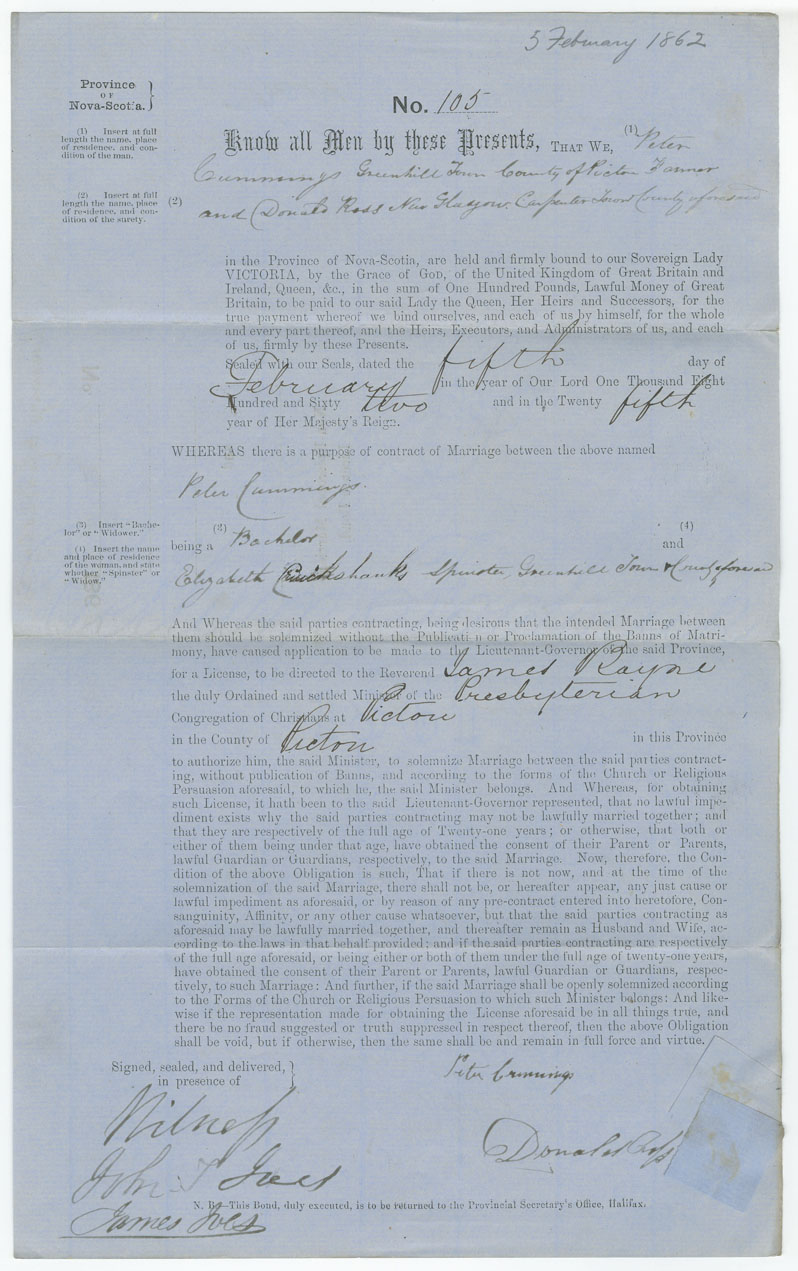 5 February 1862
Province
OF
Nova-Scotia.
No. 105
(1) Insert at full
length the name, place
of residence, and con-
dition of the man.
Know all Men by these Presents, THAT WE, (1) Peter
Cummings Greenhill Town County of Pictou Farmer
(2) Insert at full
length the name, place
of residence, and con-
dition of the surety.
(2) and Donald Ross New Glasgow, Carpenter Town County aforesaid
in the Province of Nova-Scotia, are held and firmly bound to our Sovereign Lady
VICTORIA, by the Grace of God, of the United Kingdom of Great Britain and
Ireland, Queen, &c., in the sum of One Hundred Pounds, Lawful Money of Great
Britain, to be paid to our said Lady the Queen, Her Heirs and Successors, for the
true payment whereof we bind ourselves, and each of us by himself, for the whole
and every part thereof, and the Heirs, Executors, and Administrators of us, and each
of us, firmly by these Presents.
Sealed with our Seals, dated the fifth day of
February in the year of Our Lord One Thousand Eight
Hundred and Sixty two and in the Twenty fifth
year of Her Majesty's Reign.
WHEREAS there is a purpose of contract of Marriage between the above named
Peter Cummings.
(3) Insert "Bache-
lor" or "Widower."
(4) Insert the name
and place of residence
of the woman, and state
whether "Spinster" or
"Widow."
being a (3) Bachelor and (4)
Elizabeth Cruikshanks Spinster, Greenhill Town & County aforesaid
And Whereas the said parties contracting, being desirous that the intended Marriage between
them should be solemnized without the Publicati n or Proclamation of the Banns of Matri-
mony, have caused application to be made to the Lieutenant-Governor of the said Province,
for a License, to be directed to the Reverend James Bayne
the duly Ordained and settled Minister of the Presbyterian
Congregation of Christians at Pictou
in the County of Pictou in this Province
to authorize him, the said Minister, to solemnize Marriage between the said parties contract-
ing, without publication of Banns, and according to the forms of the Church or Religious
Persuasion aforesaid, to which he, the said Minister belongs. And Whereas, for obtaining
such License, it hath been to the said Lieutenant-Governor represented, that no lawful impe-
diment exists why the said parties contracting may not be lawfully married together; and
that they are respectively of the full age of Twenty-one years; or otherwise, that both or
either of them being under that age, have obtained the consent of their Parent or Parents,
lawful Guardian or Guardians, respectively, to the said Marriage. Now, therefore, the Con-
dition of the above Obligation is such, That if there is not now, and at the time of the
solemnization of the said Marriage, there shall not be, or hereafter appear, any just cause or
lawful impediment as aforesaid, or by reason of any pre-contract entered into heretofore, Con-
sanguinity, Affinity, or any other cause whatsoever, but that the said parties contracting as
aforesaid may be lawfully married together, and thereafter remain as Husband and Wife, ac-
cording to the laws in that behalf provided; and if the said parties contracting are respectively
of the full age aforesaid, or being either or both of them under the full age of twenty-one years,
have obtained the consent of their Parent or Parents, lawful Guardian or Guardians, respec-
tively, to such Marriage: And further, if the said Marriage shall be openly solemnized according
to the Forms of the Church or Religious Persuasion to which such Minister belongs: And like-
wise if the representation made for obtaining the License aforesaid be in all things true, and
there be no fraud suggested or truth suppressed in respect thereof, then the above Obligation
shall be void, but if otherwise, then the same shall be and remain in full force and virtue.
Signed, sealed, and delivered,
in presence of
Peter Cummings
Witness
Donald Ross
John T Ives
James Ives
N. B.—This Bond, duly executed, is to be returned to the Provincial Secretary's Office, Halifax.